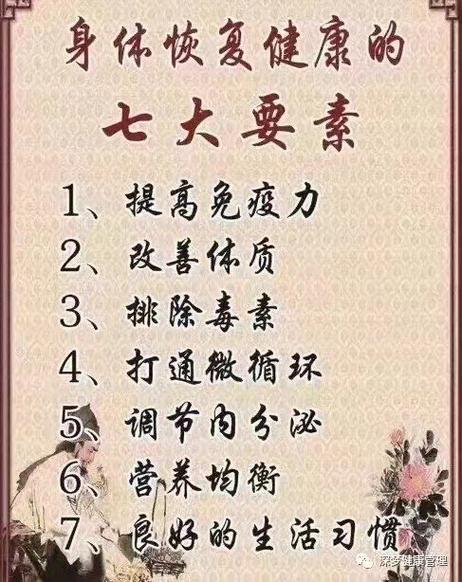 身体恢复健康的
七大要素
1、提高免疫力
2、改善体质
3、排除毒素
4、打通微循环
5、调节内分泌
6、营养均衡
7、良好的生活习惯
深梦健康管理